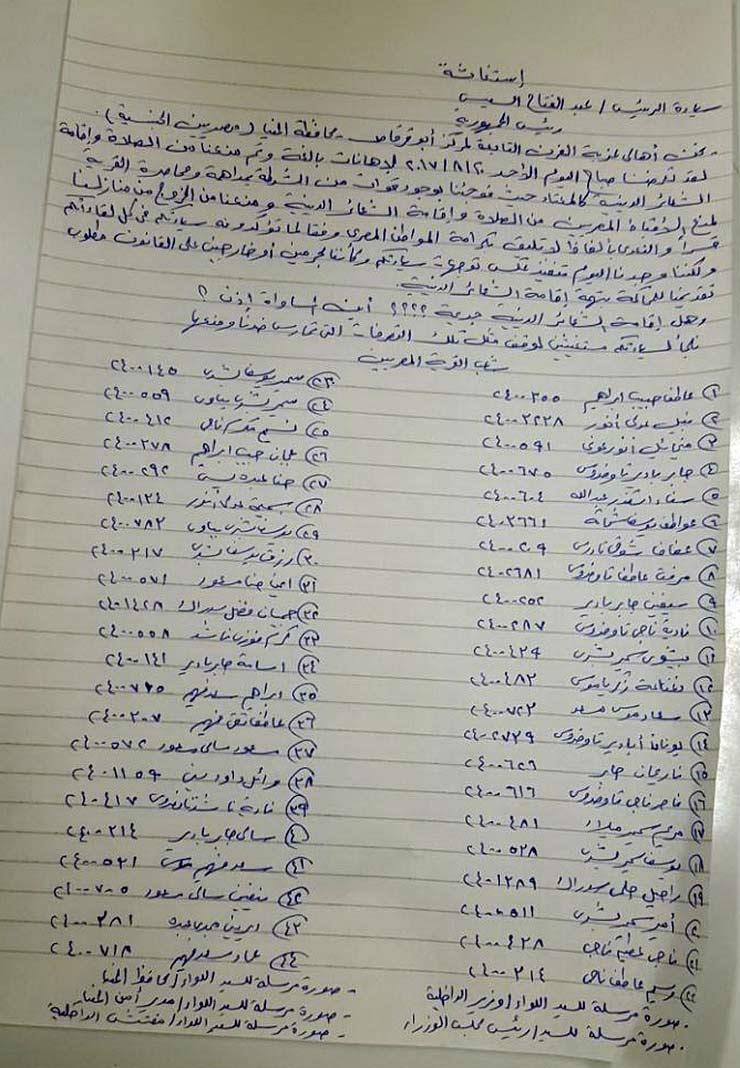 إستغاثة
سيادة الرئيس / عبد الفتاح السيسى
رئيس الجمهورية
- نحن أهالى عزبة الفرن التابعة لمركز أبو قرقاص - محافظة المنيا (مصريين الجنسية).
لقد تعرضنا صباح اليوم الأحد ٢٠١٧/٨/٢٠ لإهانات بالغة وتم منعنا من الصلاة وإقامة
الشعائر الدينية كالمعتاد حيث فوجئنا بوجود قوات من الشرطة بمداهمة ومحاصرة القرية
لمنع الأقباط المصريين من الصلاة وإقامة الشعائر الدينية ومنعنا من الخروج من منازلنا
قسراً والتفوه بألفاظ لا تليق بكرامة المواطن المصرى وفقا لما تؤكدونه سيادتكم فى كل لقاءاتكم
ولكننا وجدنا اليوم تنفيذ عكس توجهات سيادتكم وكأننا مجرمين أو خارجين على القانون مطلوب
تقديمنا للمحاكمة بتهمة إقامة الشعائر الدينية.
وهل إقامة الشعائر الدينية جريمة ؟؟؟؟ أين المساواة إذن ؟
نلجأ لسيادتكم مستغيثين لوقف مثل تلك التصرفات التى تمارس ضدنا ومنعها
شعب القرية المصريين
١ عاطف حبيب ابراهيم ٢٤٠٠٣٥٥
٢ عدلى أنور ٢٤٠٠٢٢٣٨
٣ أنور عوض ٢٤٠٠٥٩١
٤ جابر بادير تاوضروس ٢٤٠٠٦٧٥
٥ سناء اسكندر عبدالله ٢٤٠٠٦٠٤
٦ عواطف يوسف شحاتة ٢٤٠٢٦٦١
٧ عفاف شوقى تادرس ٢٤٠٠٢٠٩
٨ مرفت عاطف تاوضروس ٢٤٠٢٦٨١
٩ سيفين جابر بادير ٢٤٠٠٢٥٢
١٠ نادية ناجى تاوضروس ٢٤٠٠٢٨٧
١١ بيشوى سمير بشرى ٢٤٠٠٤٢٩
١٢ ٢٤٠٠٤٨٢
١٣ سعاد موسى ٢٤٠٠٧٢٣
١٤ يوناثا أبادير تاوضروس ٢٤٠٢٧٣٩
١٥ ناريمان جابر ٢٤٠٠٦٢٦
١٦ ناجى تاوضروس ٢٤٠٠٦١٦
١٧ مريم سمير ميلاد ٢٤٠٠٤٨١
١٨ يوسف سمير بشرى ٢٤٠٠٥٢٨
١٩ راحيل حلمى سوراك ٢٤٠١٢٨٩
٢٠ أمير سمير بشرى
٢١ ناجى عطية ناجى ٢٤٠٠٤٢٨
٢٢ وسيم عاطف ناجى ٢٤٠٠٢١٤
٢٣ سمير يوسف بشرى ٢٤٠٠١٤٥
٢٤ سمير بشرى بباوى ٢٤٠٠٥٥٩
٢٥ ٢٤٠٠٤١٢
٢٦ حبيب ابراهيم ٢٤٠٠٢٧٨
٢٧ حنا عبده ٢٤٠٠٢٩٢
٢٨ بسمة عدلى أنور ٢٤٠٠١٢٤
٢٩ يوسف بشرى بباوى ٢٤٠٠٧٨٢
٣٠ رزق يوسف بشرى ٢٤٠٠٢١٧
٣١ حنا مسعود ٢٤٠٠٥٧١
٣٢ فضل سوراك ٢٤٠١٤٢٨
٣٣ كرم فوزى ناشد ٢٤٠٠٥٥٨
٣٤ اسامة جابر بادير ٢٤٠٠١٤١
٣٥ ابراهيم سعد فهيم ٢٤٠٠٧٦٥
٣٦ عاطف تقى فهيم ٢٤٠٠٢٠٧
٣٧ مسعود سامى مسعود ٢٤٠٠٥٧٢
٣٨ وائل داود ٢٤٠١١٥٩
٣٩ نادية ٢٤٠٤١٧
٤٠ سامى جابر بادير ٢٤٠٠٢١٤
٤١ سعد فهيم ٢٤٠٠٥٢١
٤٢ سامى مسعود ٢٤٠٠٧٠٥
٤٣ ايرينى عبده ٢٤٠٠٢٨١
٤٤ عماد سعد فهيم ٢٤٠٠٧١٨
- صورة مرسلة للسيد اللواء / وزير الداخلية
- صورة مرسلة للسيد / رئيس مجلس الوزراء
- صورة مرسلة للسيد اللواء / محافظ المنيا
- صورة مرسلة للسيد اللواء / مدير أمن المنيا
- صورة مرسلة للسيد اللواء / مفتش الداخلية